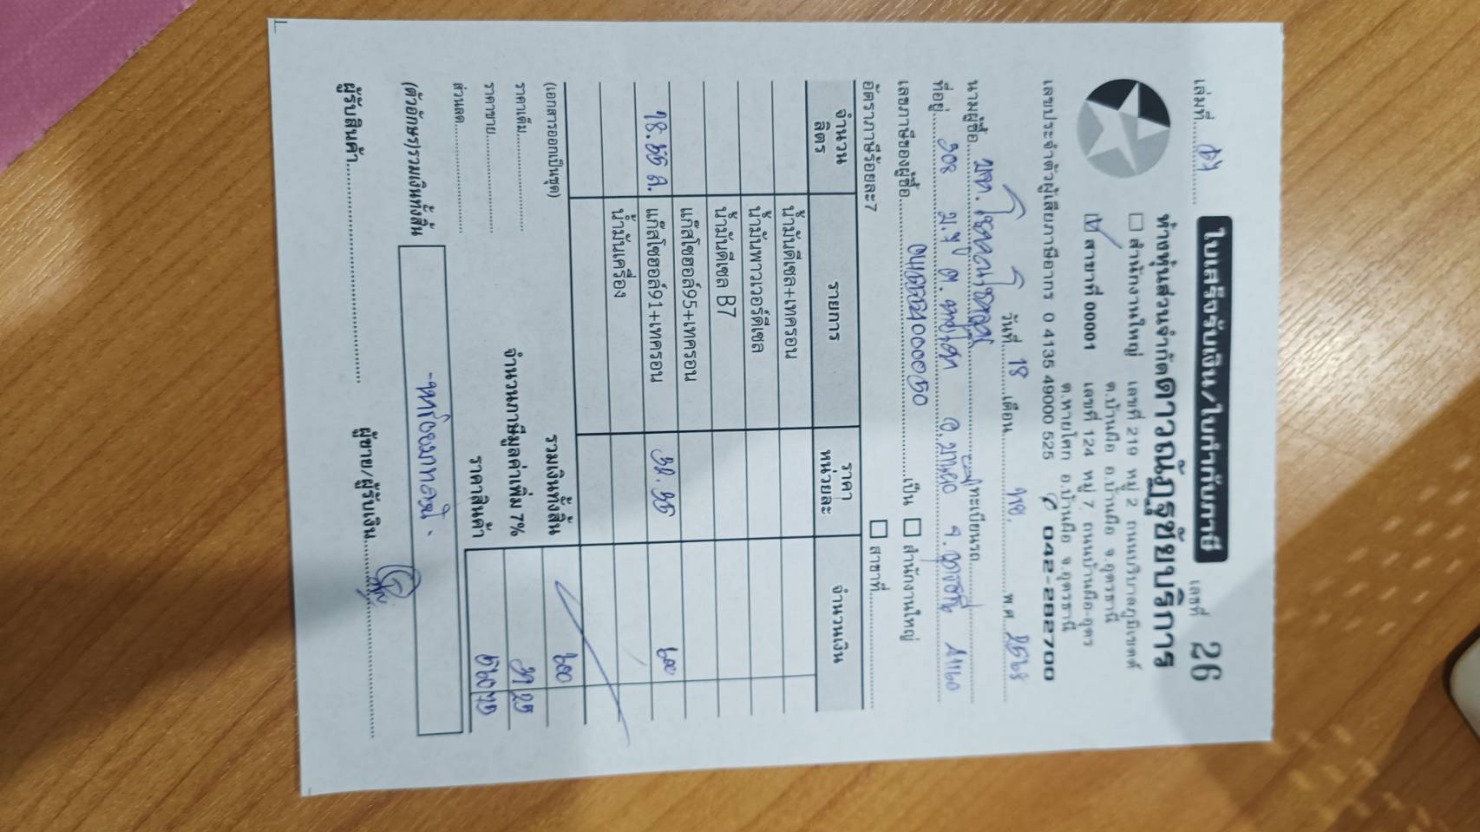 เล่มที่
ใบเสร็จรับเงิน/ใบกำกับภาษี
เลขที่ 26
ห้างหุ้นส่วนจำกัดดาวณัฏฐชัยบริการ
สำนักงานใหญ่ เลขที่ 219 หมู่ 2 ถนนวิบาลภูมิเขตต์
ต.บ้านผือ อ.บ้านผือ จ.อุดรธานี
สาขาที่ 00001 เลขที่ 124 หมู่ 7 ถนนบ้านผือ-อุดร
ต.หายโศก อ.บ้านผือ จ.อุดรธานี
เลขประจำตัวผู้เสียภาษีอากร 0 4135 49000 525 042-282700
วันที่ 18 เดือน พย. พ.ศ. 2568
นามผู้ซื้อ ทะเบียนรถ
ที่อยู่ 308 ม.
เลขภาษีของผู้ซื้อ เป็น สำนักงานใหญ่
อัตราภาษีร้อยละ7 สาขาที่
จำนวน ลิตร รายการ ราคา หน่วยละ จำนวนเงิน
น้ำมันดีเซล+เทครอน
น้ำมันพาวเวอร์ดีเซล
น้ำมันดีเซล B7
แก๊สโซฮอล์95+เทครอน
แก๊สโซฮอล์91+เทครอน 600
น้ำมันเครื่อง
(เอกสารออกเป็นชุด) รวมเงินทั้งสิ้น 600
ราคาเต็ม จำนวนภาษีมูลค่าเพิ่ม 7% 39 25
ราคาขาย ราคาสินค้า 560 75
ส่วนลด
(ตัวอักษร)รวมเงินทั้งสิ้น -หกร้อยบาทถ้วน-
ผู้รับสินค้า ผู้ขาย/ผู้รับเงิน